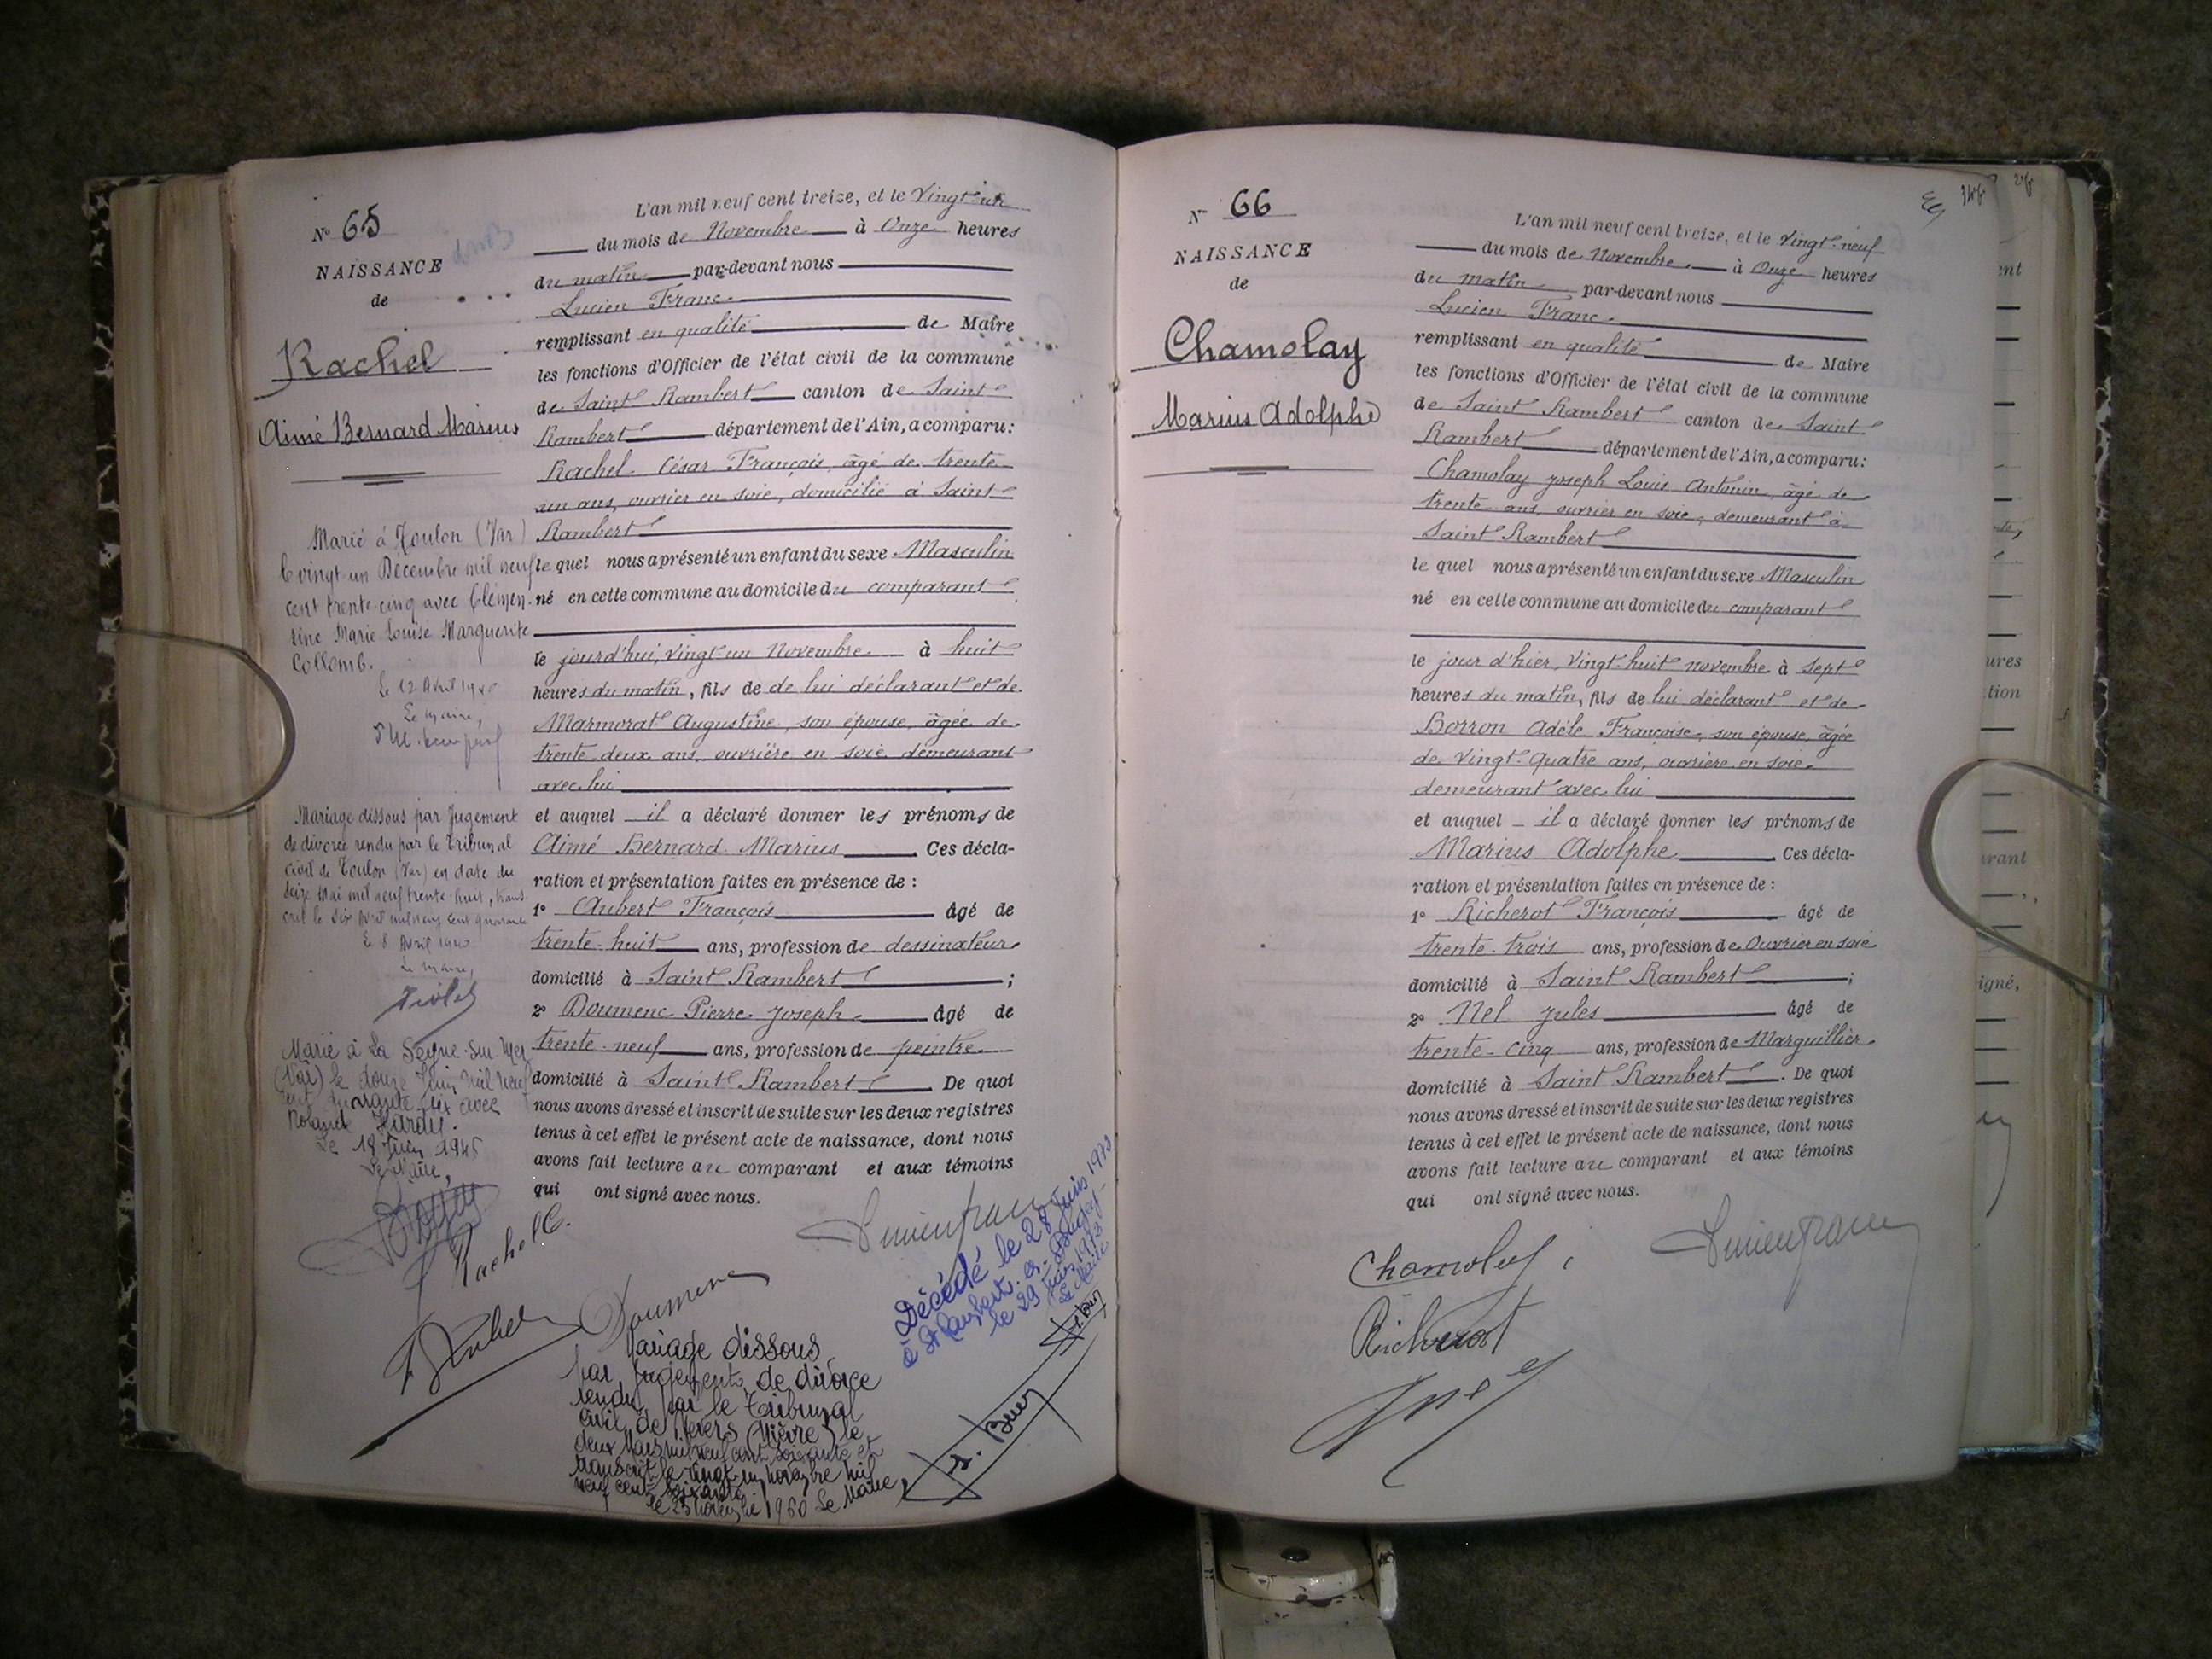 N° 65
NAISSANCE
de
Rachel
Aimé Bernard Marius
Marié à Toulon (Var)
le vingt-un Décembre mil neuf
cent trente cinq avec Clémen-
tine Marie Louise Marguerite
Collomb.
Le 12 Avril
Le Maire,
Mariage dissous par Jugement
de divorce rendu par le Tribunal
civil de Toulon (Var) en date du
seize Mai mil neuf trente-huit, trans
crit le six Avril mil neuf cent quarante
Le 8 Avril 1940
Le Maire,
Marié à La Seyne-sur-Mer
(Var) le douze Juin mil neuf
cent quarante avec
Le 18 Juin 1945
Le Maire,
L'an mil neuf cent treize, et le Vingt-un
du mois de Novembre à Onze heures
du matin par-devant nous
Lucien Franc
remplissant en qualité de Maire
les fonctions d'Officier de l'état civil de la commune
de Saint Rambert canton de Saint
Rambert département de l'Ain, a comparu:
Rachel César François, âgé de trente
un ans, ouvrier en soie, domicilié à Saint
Rambert
le quel nous a présenté un enfant du sexe Masculin
né en cette commune au domicile du comparant
le jourd'hui, vingt-un Novembre à huit
heures du matin, fils de de lui déclarant et de
Marmorat Augustine, son épouse, âgée de
trente deux ans, ouvrière en soie demeurant
avec lui
et auquel il a déclaré donner les prénoms de
Aimé Bernard Marius. Ces décla-
ration et présentation faites en présence de :
1° Aubert François âgé de
trente-huit ans, profession de dessinateur
domicilié à Saint Rambert ;
2° Doumenc Pierre Joseph âgé de
trente-neuf ans, profession de peintre
domicilié à Saint Rambert. De quoi
nous avons dressé et inscrit de suite sur les deux registres
tenus à cet effet le présent acte de naissance, dont nous
avons fait lecture au comparant et aux témoins
qui ont signé avec nous.
Rachel C.
Lucien franc
Doumenc
Décédé le 28 Juin 1973
à St Rambert-en-Bugey
le 29 Juin 1973
Le Maire
Mariage dissous
par Jugement de divorce
rendu par le Tribunal
civil de Nevers (Nièvre) le
deux Mars mil neuf cent soixante et
transcrit le vingt-un novembre mil
neuf cent soixante
le 25 novembre 1960 Le Maire,
N° 66
NAISSANCE
de
Chamolay
Marius Adolphe
L'an mil neuf cent treize, et le Vingt-neuf
du mois de Novembre à Onze heures
du matin par-devant nous
Lucien Franc
remplissant en qualité de Maire
les fonctions d'Officier de l'état civil de la commune
de Saint Rambert canton de Saint
Rambert département de l'Ain, a comparu:
Chamolay Joseph Louis Antonin, âgé de
trente ans, ouvrier en soie, demeurant à
Saint Rambert
le quel nous a présenté un enfant du sexe Masculin
né en cette commune au domicile du comparant
le jour d'hier, vingt-huit novembre à sept
heures du matin, fils de lui déclarant et de
Borron Adèle Françoise, son épouse, âgée
de Vingt-Quatre ans, ouvrière en soie
demeurant avec lui
et auquel il a déclaré donner les prénoms de
Marius Adolphe. Ces décla-
ration et présentation faites en présence de :
1° Richerot François âgé de
trente-trois ans, profession de Ouvrier en soie
domicilié à Saint Rambert ;
2° Nel Jules âgé de
trente-cinq ans, profession de Marguillier
domicilié à Saint Rambert. De quoi
nous avons dressé et inscrit de suite sur les deux registres
tenus à cet effet le présent acte de naissance, dont nous
avons fait lecture au comparant et aux témoins
qui ont signé avec nous.
Chamolay
Lucien franc
Richerot
Nel